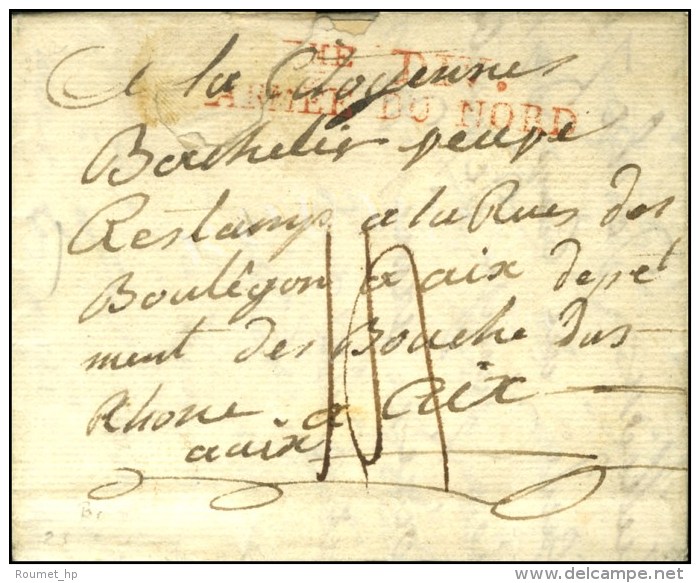 ME DIV.
ARMÉE DU NORD
A la Citoyenne
Bachelir
Restamp a la Rues des
Boulégon a aix depet
ment des Bouche dus
Rhone a aix
aaix
Roumet_hp
www.delcampe.net